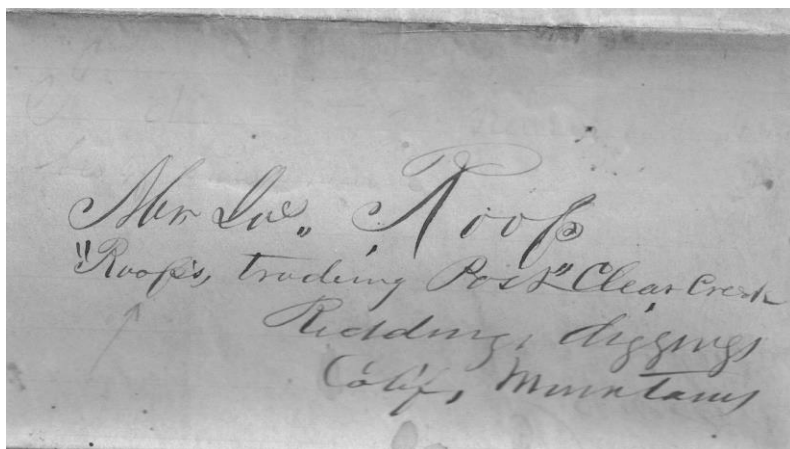 Mr Jos. Roop
"Roop's, trading Post" Clear Creek
Redding, diggings
Calif, Mountains